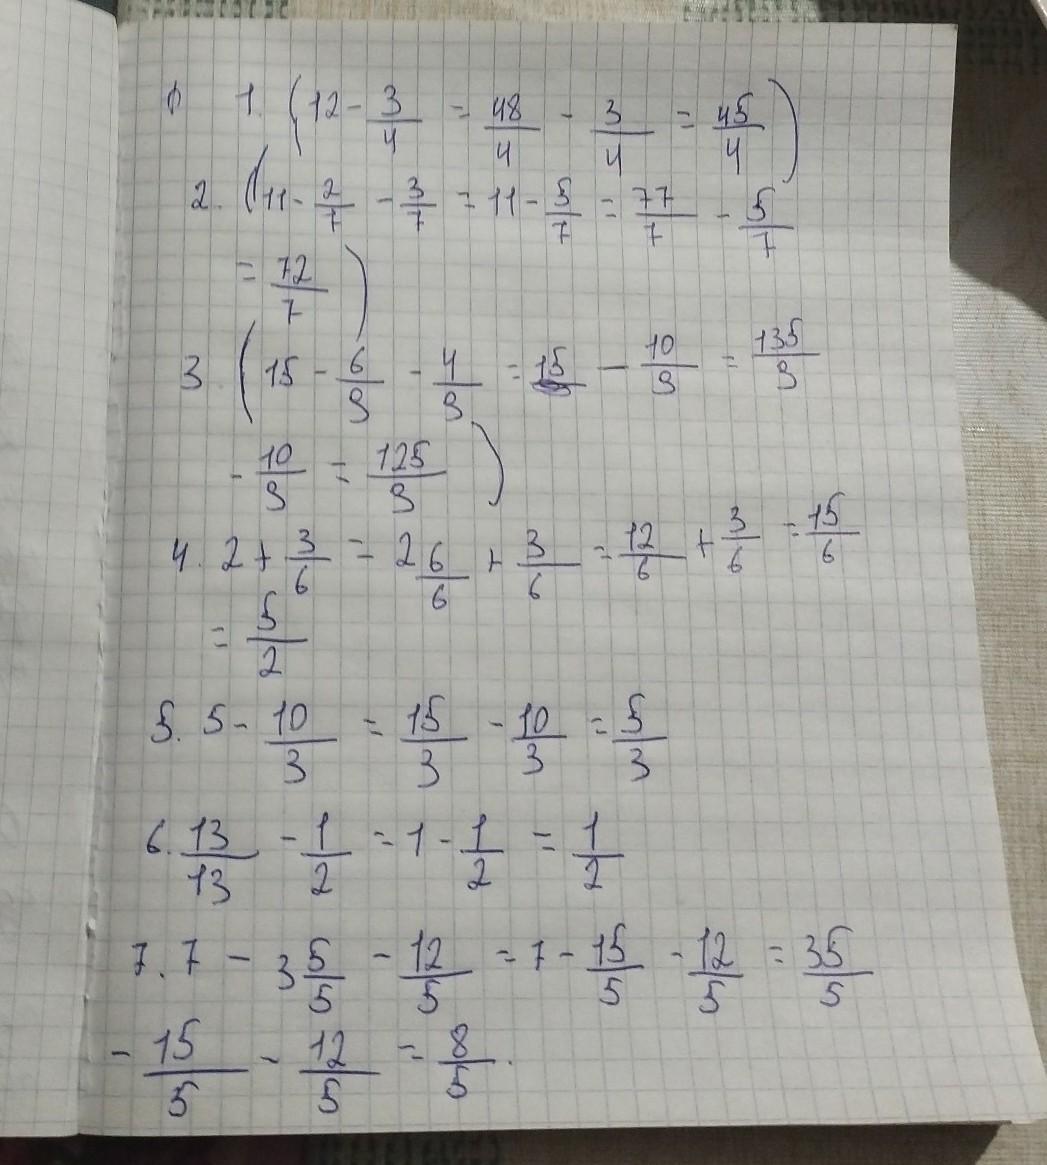 1 1. (12 - 3/4 = 48/4 - 3/4 = 45/4)
2. (11 - 2/7 - 3/7 = 11 - 5/7 = 77/7 - 5/7
= 72/7)
3. (15 - 6/9 - 4/9 = 15 - 10/9 = 135/9
- 10/9 = 125/9)
4. 2 + 3/6 = 2 6/6 + 3/6 = 12/6 + 3/6 = 15/6
= 5/2
5. 5 - 10/3 = 15/3 - 10/3 = 5/3
6. 13/13 - 1/2 = 1 - 1/2 = 1/2
7. 7 - 3 5/5 - 12/5 = 7 - 15/5 - 12/5 = 35/5
- 15/5 - 12/5 = 8/5.